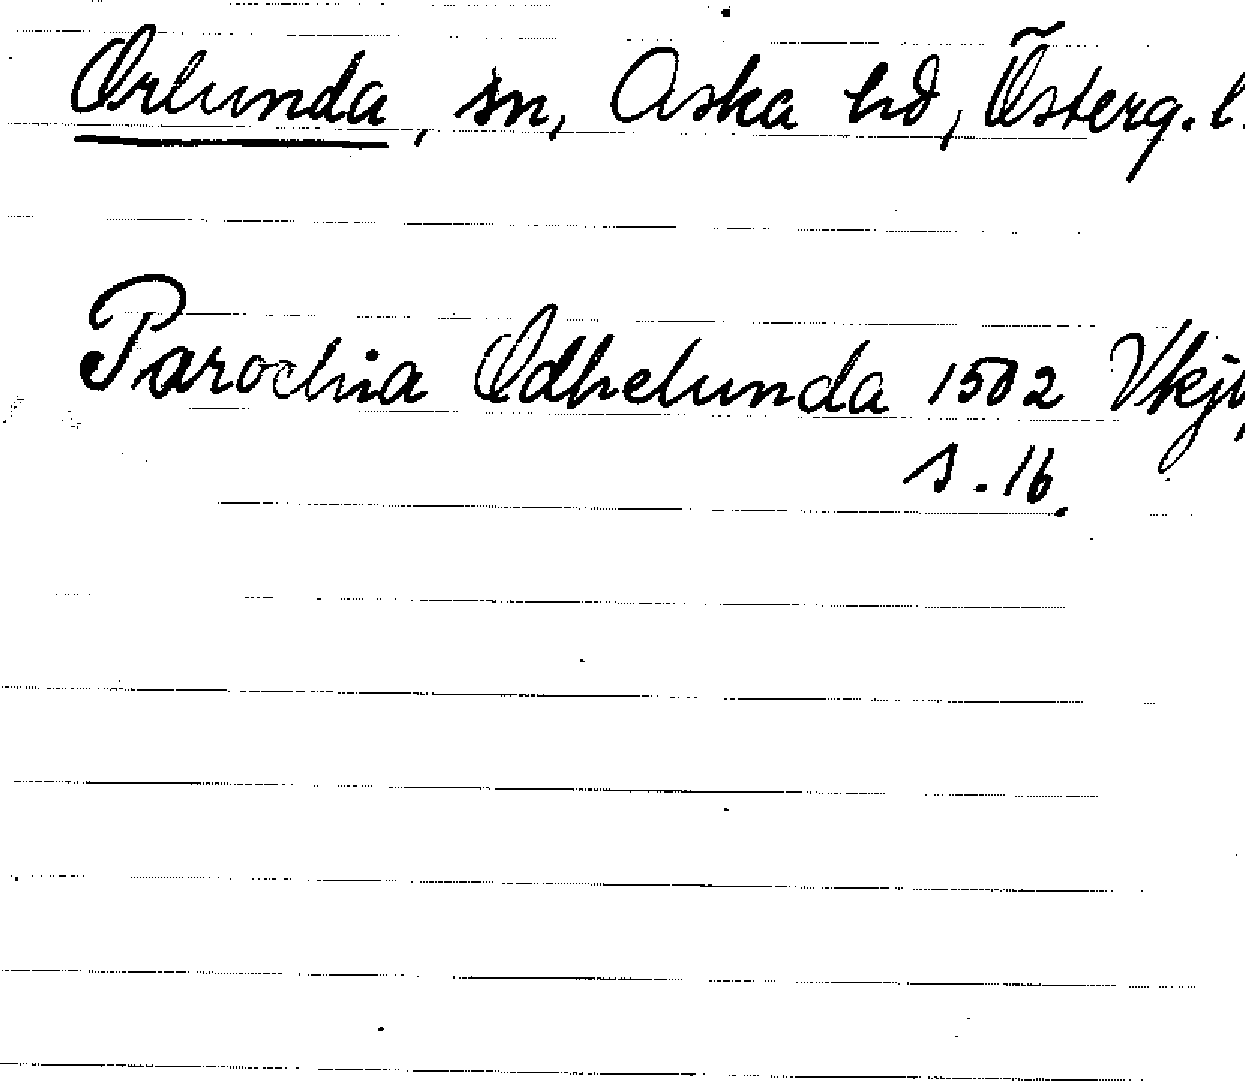 Orlunda, sn, Aska hd, Österg. l.
Parochia Odhelunda 1502 Vkjb,
s. 16.